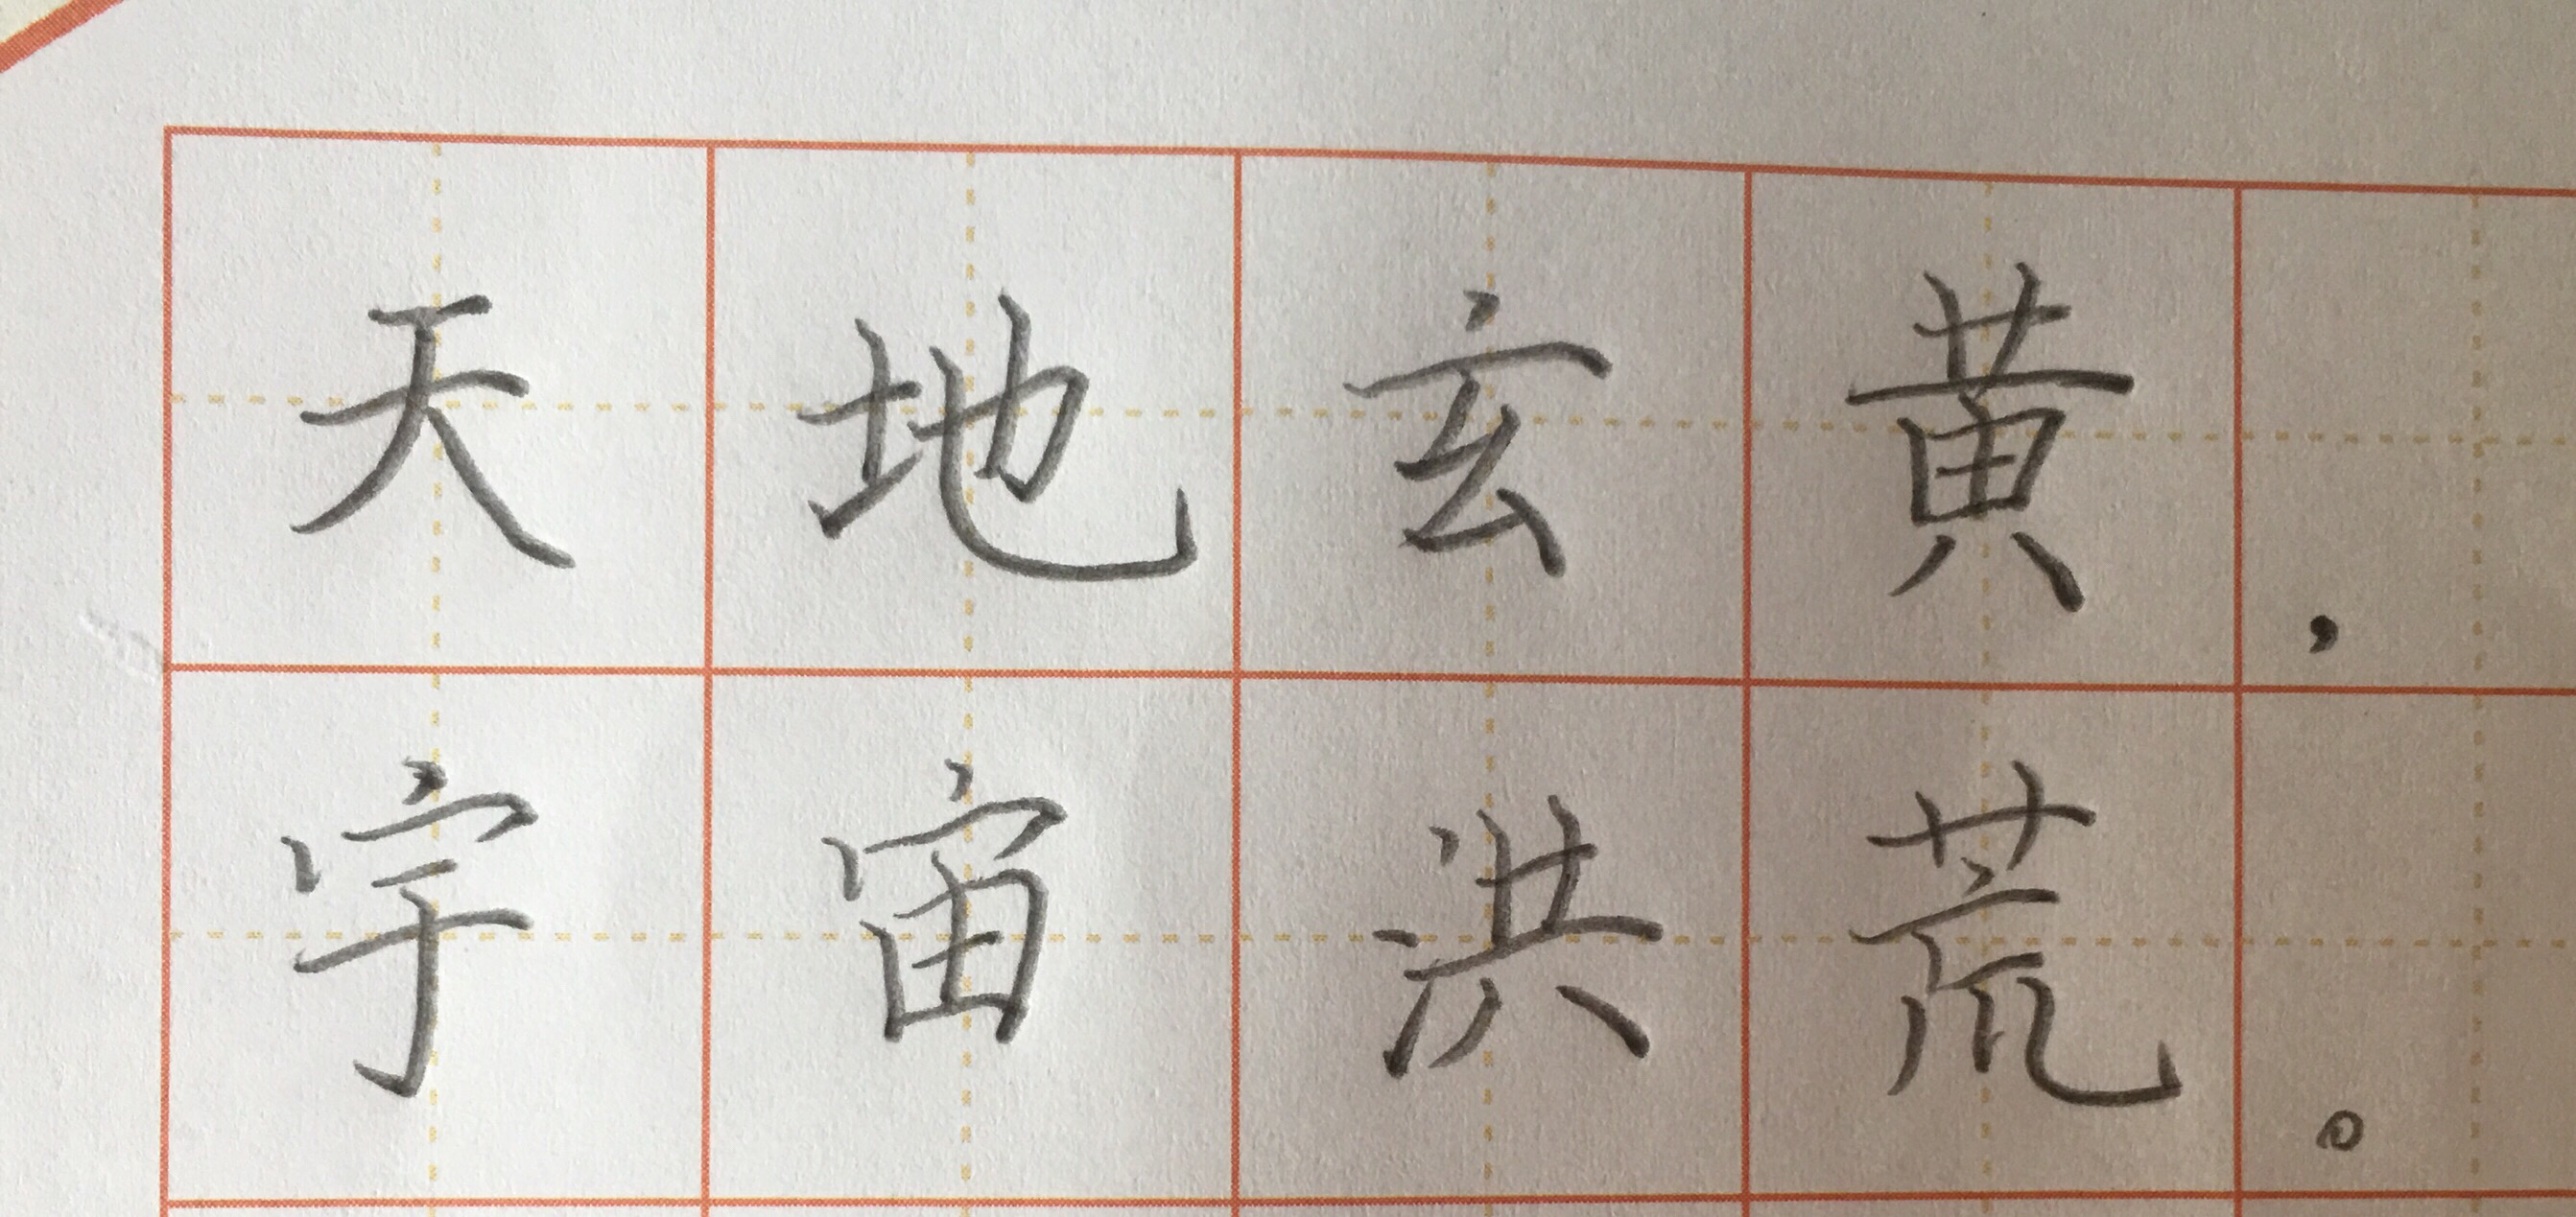 天地玄黄，
宇宙洪荒。